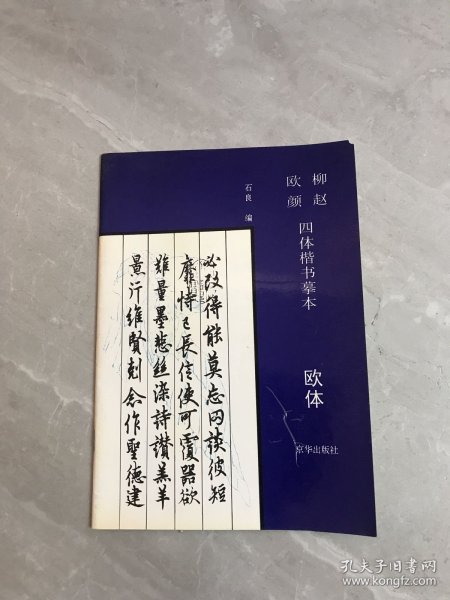 柳赵
欧颜
四体楷书摹本
欧体
京华出版社
石良 编
必改得能莫忘罔谈彼短
靡恃己長信使可覆器欲
難量墨悲絲染詩讚羔羊
景行維賢剋念作聖德建
孔夫子旧书网
www.kongfz.com